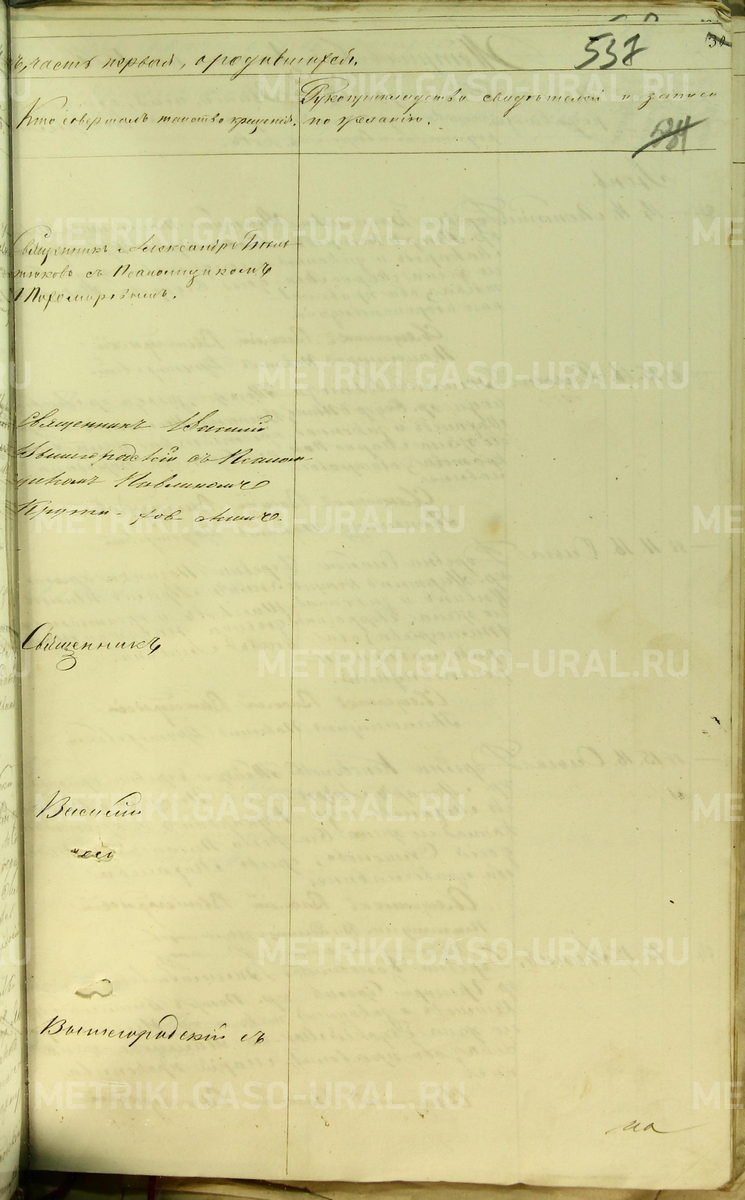 537
ъ, часть первая, о родившихся.
Кто совершалъ таинство крещенія.
Рукоприкладство свидѣтелей о записи
по желанію.
Священникъ Александръ
съ Псаломщикомъ
Священникъ Василій
Вышегородскій съ Псалом
щикомъ Павлиномъ
Священникъ
Василій
Вышегородскій съ
METRIKI.GASO-URAL.RU